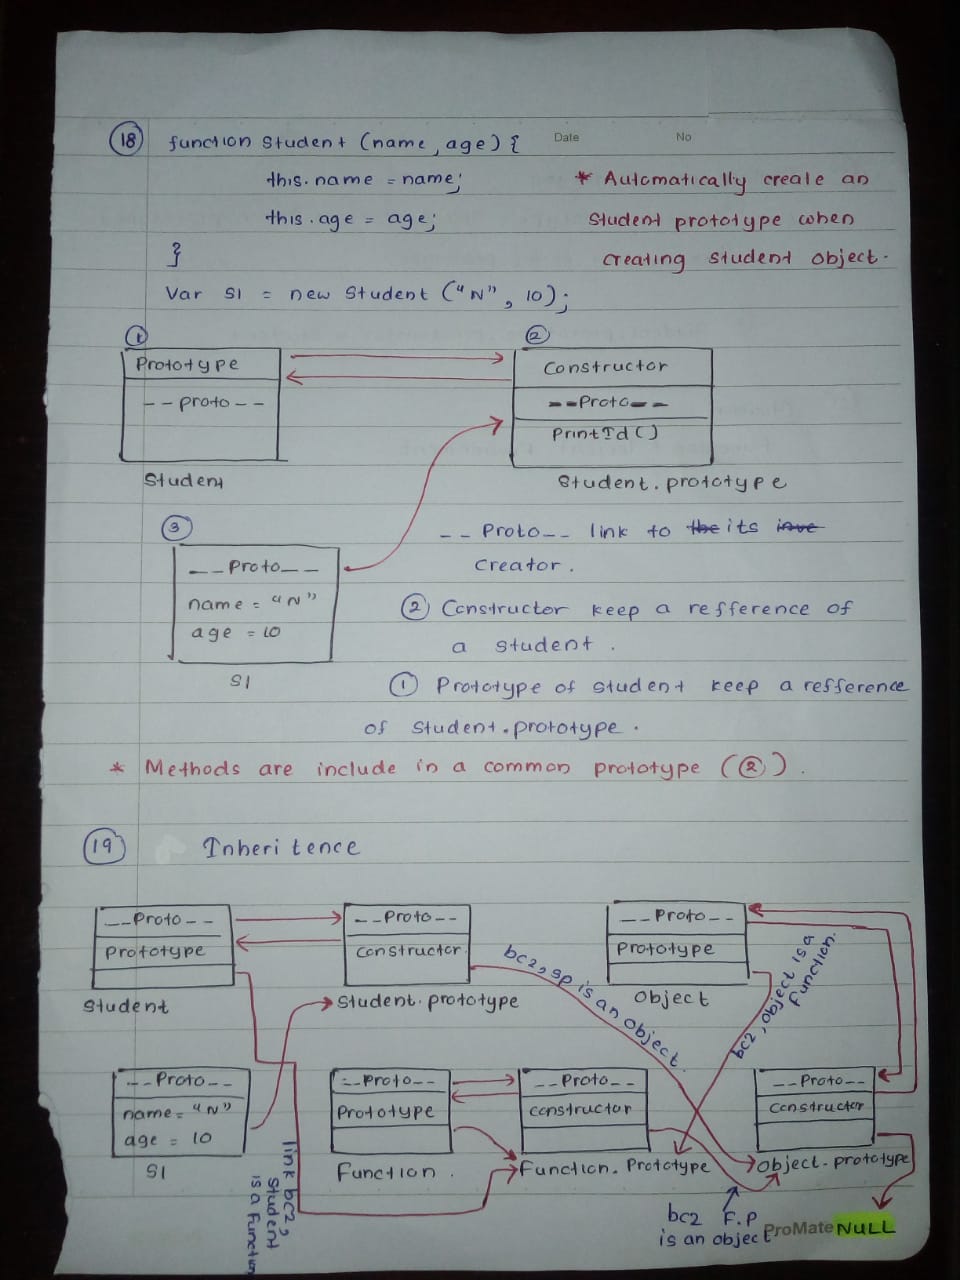 Date No
18 function Student (name, age) {
this.name = name;
* Automatically create an
this.age = age;
Student prototype when
}
creating student object.
Var S1 = new Student ("N", 10);
1
2
Prototype
Constructor
--proto--
--Proto--
PrintId()
Student
Student.prototype
3
--Proto-- link to the its inve
creator.
--Proto--
name = "N"
age = 10
S1
2 Constructor keep a refference of
a student.
1 Prototype of student keep a refference
of student.prototype.
* Methods are include in a common prototype (2).
19 Inheritence
--Proto--
Prototype
Student
--Proto--
constructor
Student.prototype
--Proto--
Prototype
Object
bc2, sp is an object.
bc2, object is a
function.
--Proto--
name = "N"
age = 10
S1
--Proto--
Prototype
Function.
--Proto--
constructor
Function.Prototype
--Proto--
Constructor
Object.prototype
link bc2,
student
is a Function
bc2 F.P
is an object
ProMate
NULL